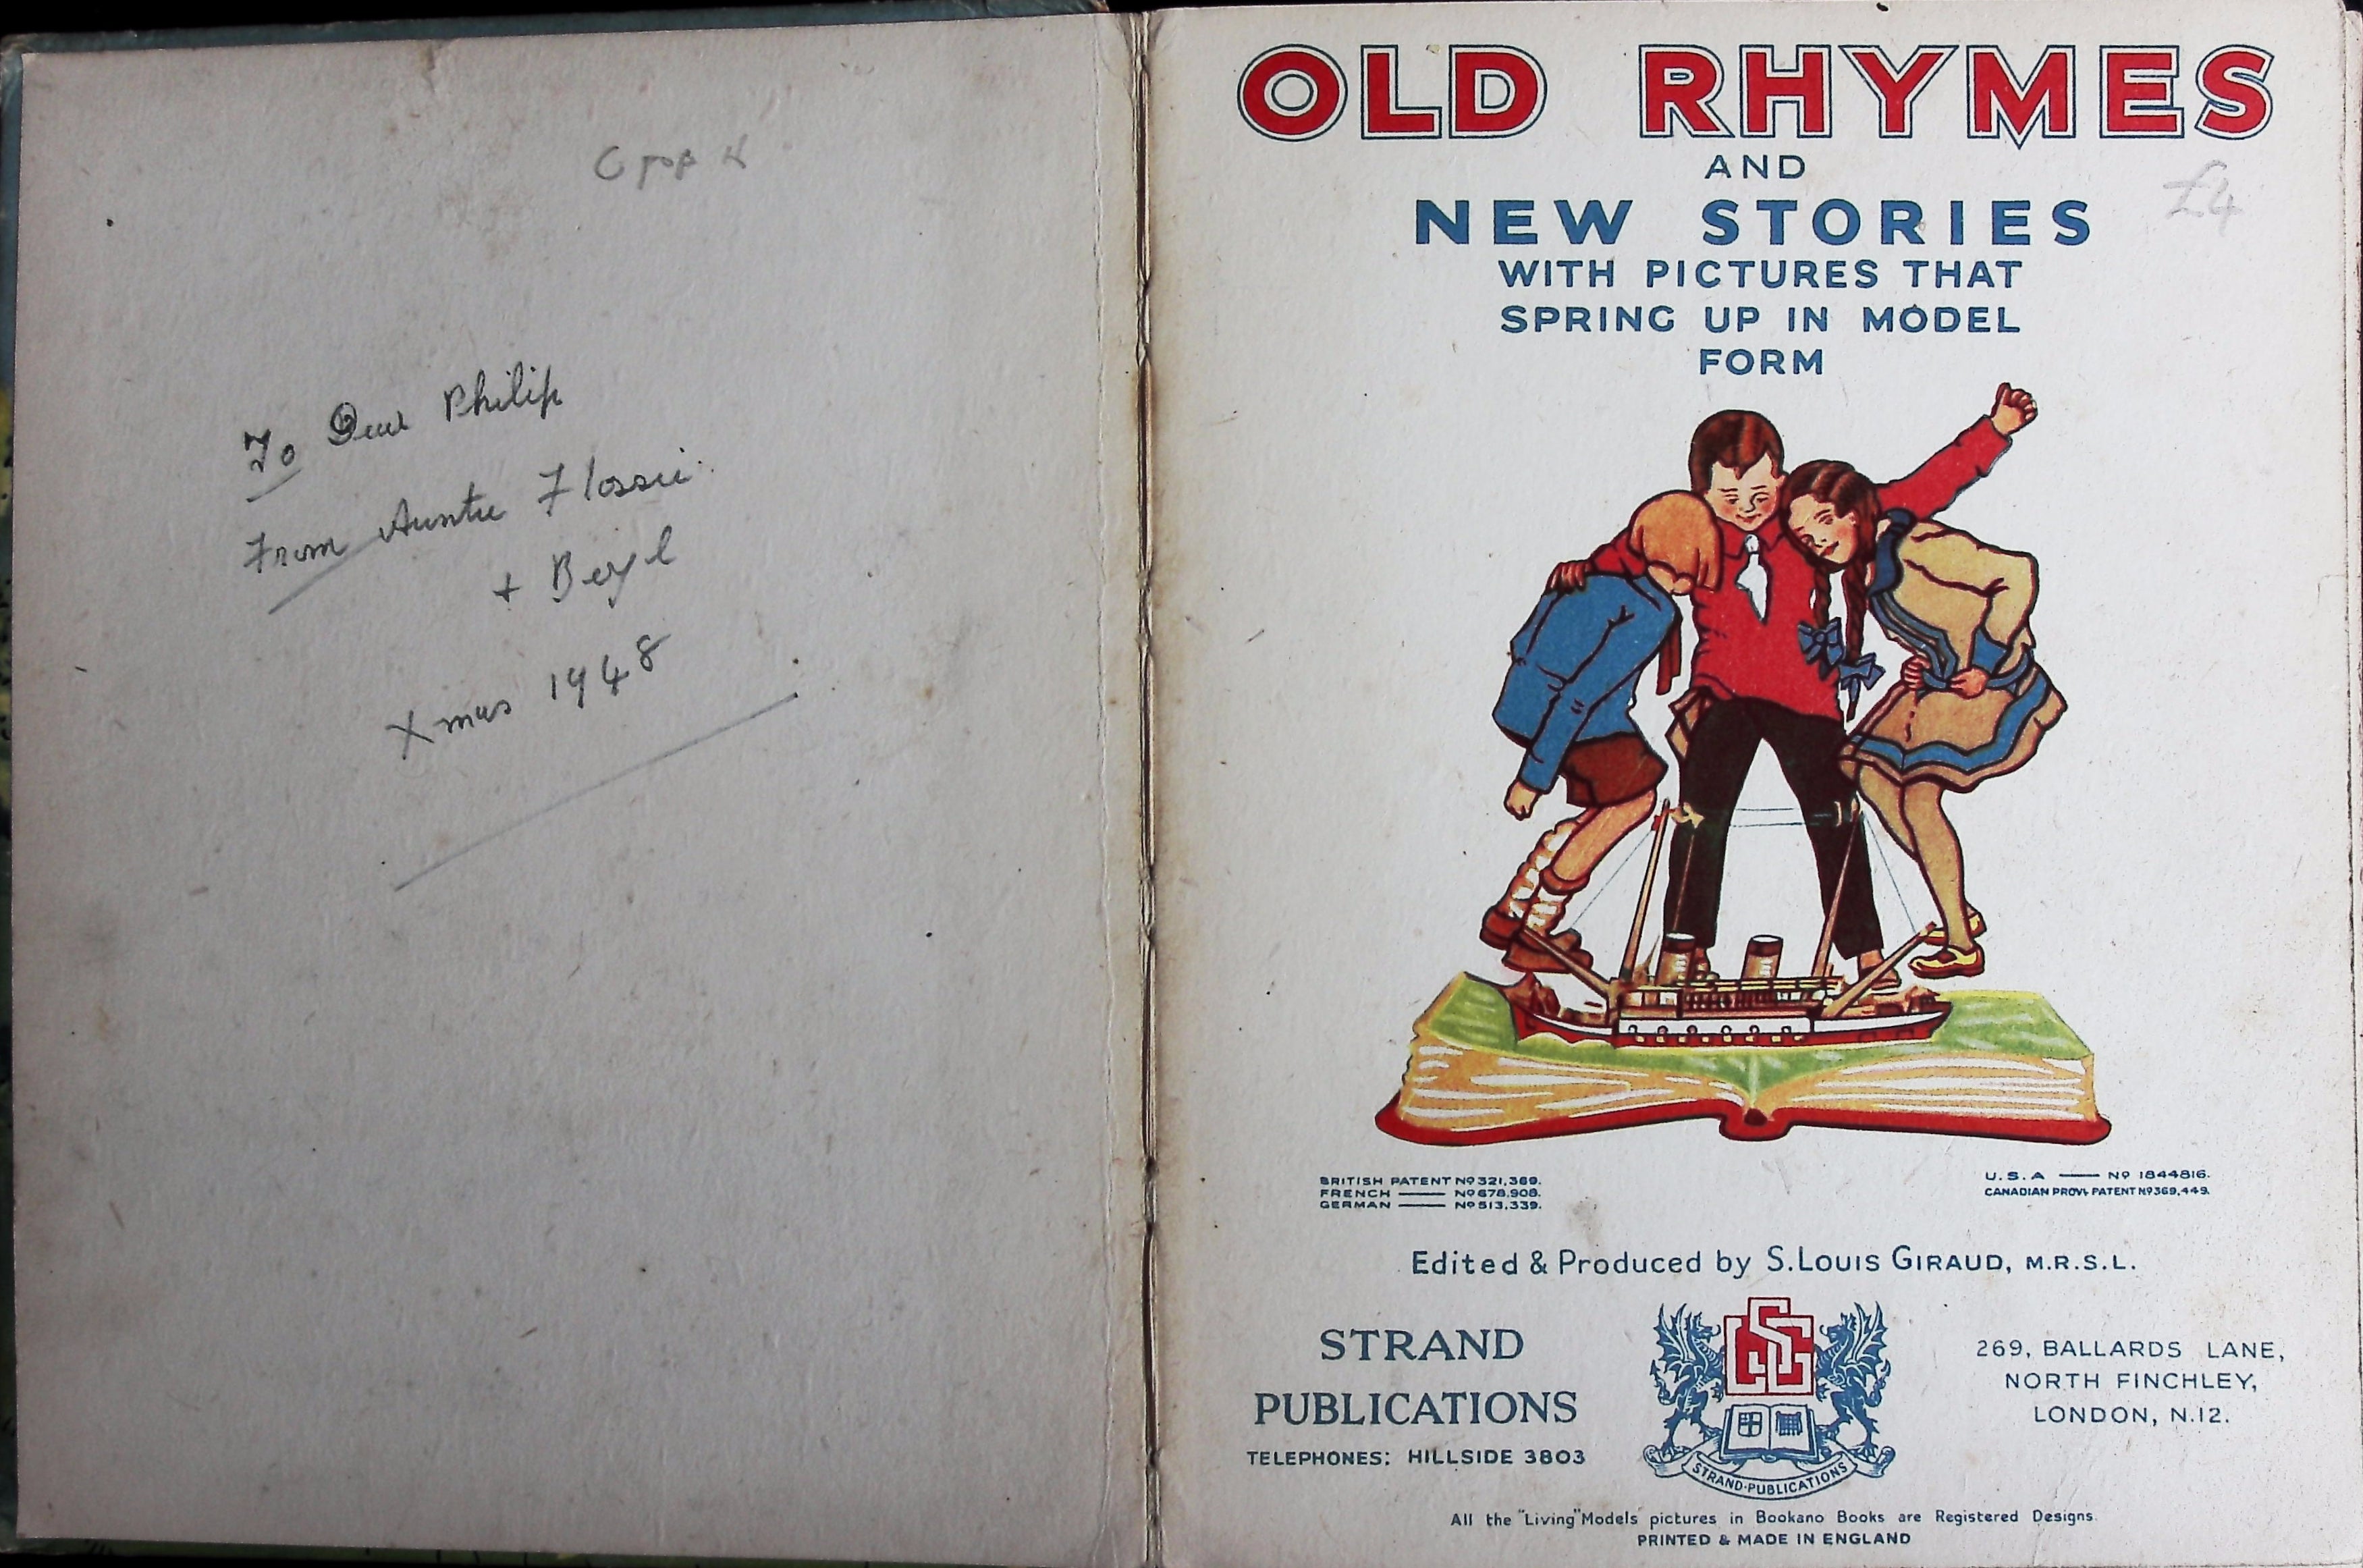 To Dear Philip
From Auntie Flossie.
+ Beryl
Xmas 1948
OLD RHYMES
AND
NEW STORIES
£4
WITH PICTURES THAT
SPRING UP IN MODEL
FORM
BRITISH PATENT Nº 321,369.
FRENCH —— Nº 678,908.
GERMAN —— Nº 513,339.
U.S.A —— Nº 1844816.
CANADIAN PROVL PATENT Nº 369,449.
Edited & Produced by S. LOUIS GIRAUD, M.R.S.L.
STRAND
PUBLICATIONS
TELEPHONES: HILLSIDE 3803
STRAND·PUBLICATIONS
269, BALLARDS LANE,
NORTH FINCHLEY,
LONDON, N.12.
All the "Living" Models pictures in Bookano Books are Registered Designs.
PRINTED & MADE IN ENGLAND